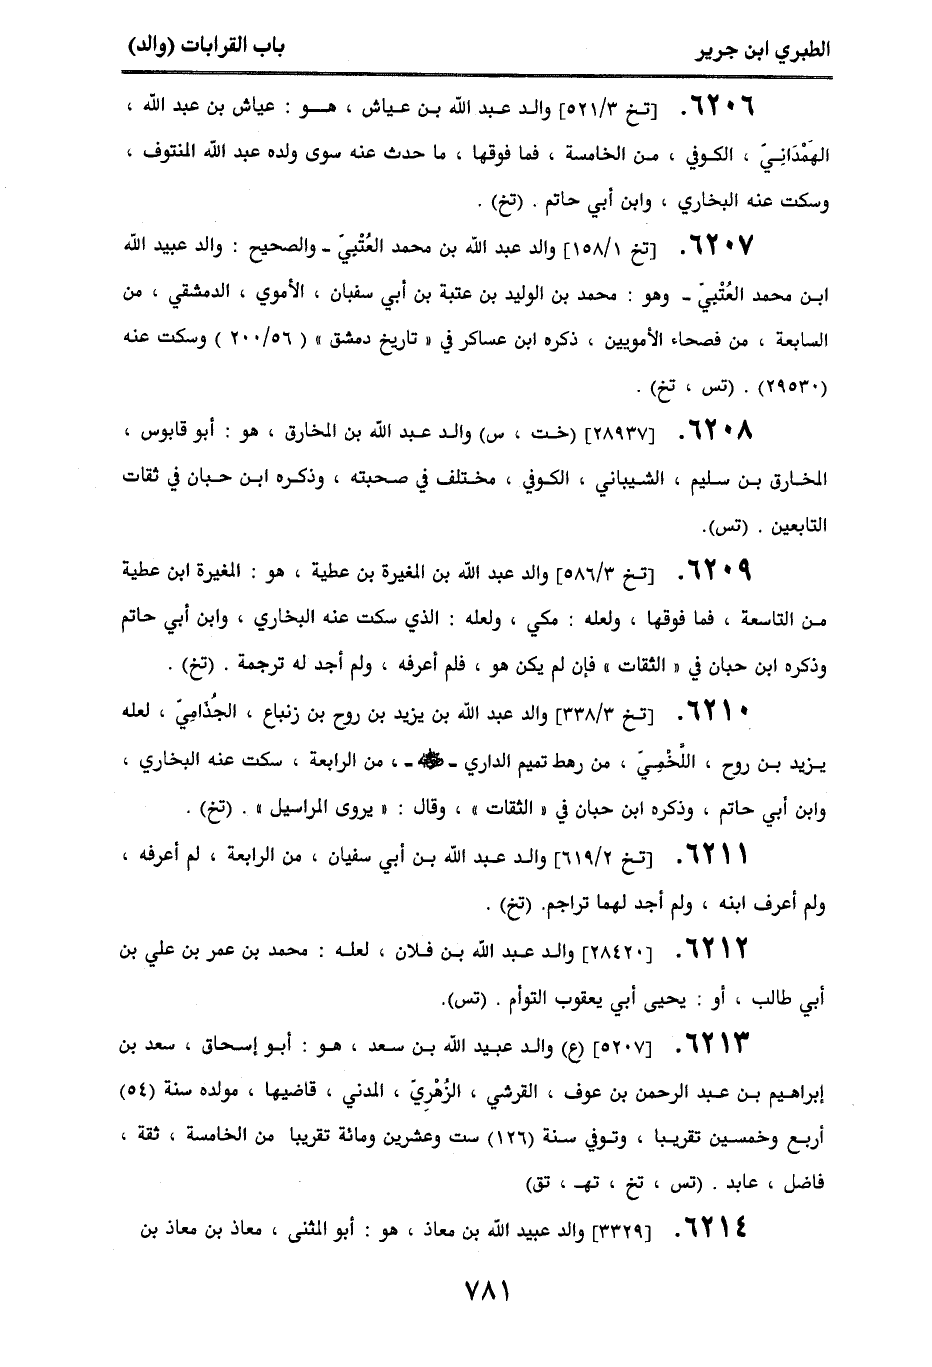 الطبري ابن جرير باب القرابات (والد)
٦٢٠٦. [تخ ٥٢١/٣] والد عبد الله بن عياش ، هو : عياش بن عبد الله ،
الهَمْدَانِيّ ، الكوفي ، من الخامسة ، فما فوقها ، ما حدث عنه سوى ولده عبد الله المنتوف ،
وسكت عنه البخاري ، وابن أبي حاتم . (تخ) .
٦٢٠٧. [تخ ١٥٨/١] والد عبد الله بن محمد العُتْبيّ ـ والصحيح : والد عبيد الله
ابن محمد العُتْبيّ ـ وهو : محمد بن الوليد بن عتبة بن أبي سفبان ، الأموي ، الدمشقي ، من
السابعة ، من فصحاء الأمويين ، ذكره ابن عساكر في « تاريخ دمشق » ( ٢٠٠/٥٦ ) وسكت عنه
(٢٩٥٣٠) . (تس ، تخ) .
٦٢٠٨. [٢٨٩٣٧] (خت ، س) والد عبد الله بن المخارق ، هو : أبو قابوس ،
المخارق بن سليم ، الشيباني ، الكوفي ، مختلف في صحبته ، وذكره ابن حبان في ثقات
التابعين . (تس).
٦٢٠٩. [تخ ٥٨٦/٣] والد عبد الله بن المغيرة بن عطية ، هو : المغيرة ابن عطية
من التاسعة ، فما فوقها ، ولعله : مكي ، ولعله : الذي سكت عنه البخاري ، وابن أبي حاتم
وذكره ابن حبان في « الثقات » فإن لم يكن هو ، فلم أعرفه ، ولم أجد له ترجمة . (تخ) .
٦٢١٠. [تخ ٣٣٨/٣] والد عبد الله بن يزيد بن روح بن زنباع ، الجُذَامِيّ ، لعله
يزيد بن روح ، اللَّخْمِيّ ، من رهط تميم الداري ـ ـ ، من الرابعة ، سكت عنه البخاري ،
وابن أبي حاتم ، وذكره ابن حبان في « الثقات » ، وقال : « يروى المراسيل » . (تخ) .
٦٢١١. [تخ ٦١٩/٢] والد عبد الله بن أبي سفيان ، من الرابعة ، لم أعرفه ،
ولم أعرف ابنه ، ولم أجد لهما تراجم. (تخ) .
٦٢١٢. [٢٨٤٢٠] والد عبد الله بن فلان ، لعله : محمد بن عمر بن علي بن
أبي طالب ، أو : يحيى أبي يعقوب التوأم . (تس).
٦٢١٣. [٥٢٠٧] (ع) والد عبيد الله بن سعد ، هو : أبو إسحاق ، سعد بن
إبراهيم بن عبد الرحمن بن عوف ، القرشي ، الزُهْرِيّ ، المدني ، قاضيها ، مولده سنة (٥٤)
أربع وخمسين تقريبا ، وتوفي سنة (١٢٦) ست وعشرين ومائة تقريبا من الخامسة ، ثقة ،
فاضل ، عابد . (تس ، تخ ، تهـ ، تق)
٦٢١٤. [٣٣٢٩] والد عبيد الله بن معاذ ، هو : أبو المثنى ، معاذ بن معاذ بن
٧٨١